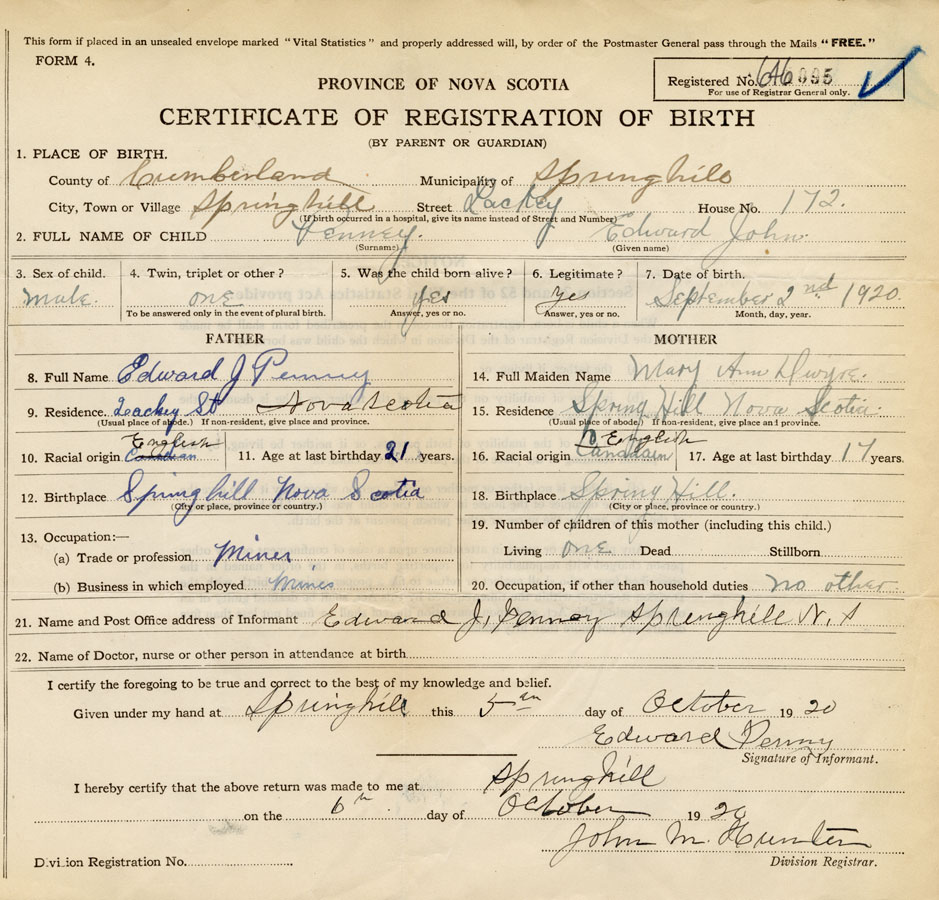 This form if placed in an unsealed envelope marked "Vital Statistics" and properly addressed will, by order of the Postmaster General pass through the Mails "FREE."
FORM 4.
Registered No. 646995
For use of Registrar General only.
PROVINCE OF NOVA SCOTIA
CERTIFICATE OF REGISTRATION OF BIRTH
(BY PARENT OR GUARDIAN)
1. PLACE OF BIRTH.
County of Cumberland Municipality of Springhill
City, Town or Village Springhill Street Lackey House No. 172.
(If birth occurred in a hospital, give its name instead of Street and Number)
2. FULL NAME OF CHILD Penney. Edward John.
(Surname) (Given name)
3. Sex of child. 4. Twin, triplet or other? 5. Was the child born alive? 6. Legitimate? 7. Date of birth.
Male. one yes yes September 2nd 1920.
To be answered only in the event of plural birth. Answer, yes or no. Answer, yes or no. Month, day, year.
FATHER
8. Full Name Edward J Penny
9. Residence. Lackey St Nova Scotia
(Usual place of abode.) If non-resident, give place and province.
English
10. Racial origin Canadian 11. Age at last birthday 21 years.
12. Birthplace Springhill Nova Scotia
(City or place, province or country.)
13. Occupation:—
(a) Trade or profession Miner
(b) Business in which employed Mines
MOTHER
14. Full Maiden Name Mary Ann Dwyre.
15. Residence Spring Hill Nova Scotia.
(Usual place of abode.) If non-resident, give place and province.
English
16. Racial origin Canadain 17. Age at last birthday 17 years.
18. Birthplace Spring Hill.
(City or place, province or country.)
19. Number of children of this mother (including this child.)
Living one Dead Stillborn
20. Occupation, if other than household duties no other
21. Name and Post Office address of Informant Edward J. Penney Springhill N. S
22. Name of Doctor, nurse or other person in attendance at birth
I certify the foregoing to be true and correct to the best of my knowledge and belief.
Given under my hand at Springhill this 5th day of October 1920
Edward Penny
Signature of Informant.
I hereby certify that the above return was made to me at Springhill
on the 6th day of October 1920
John M. Hunter
Division Registrar.
Division Registration No.